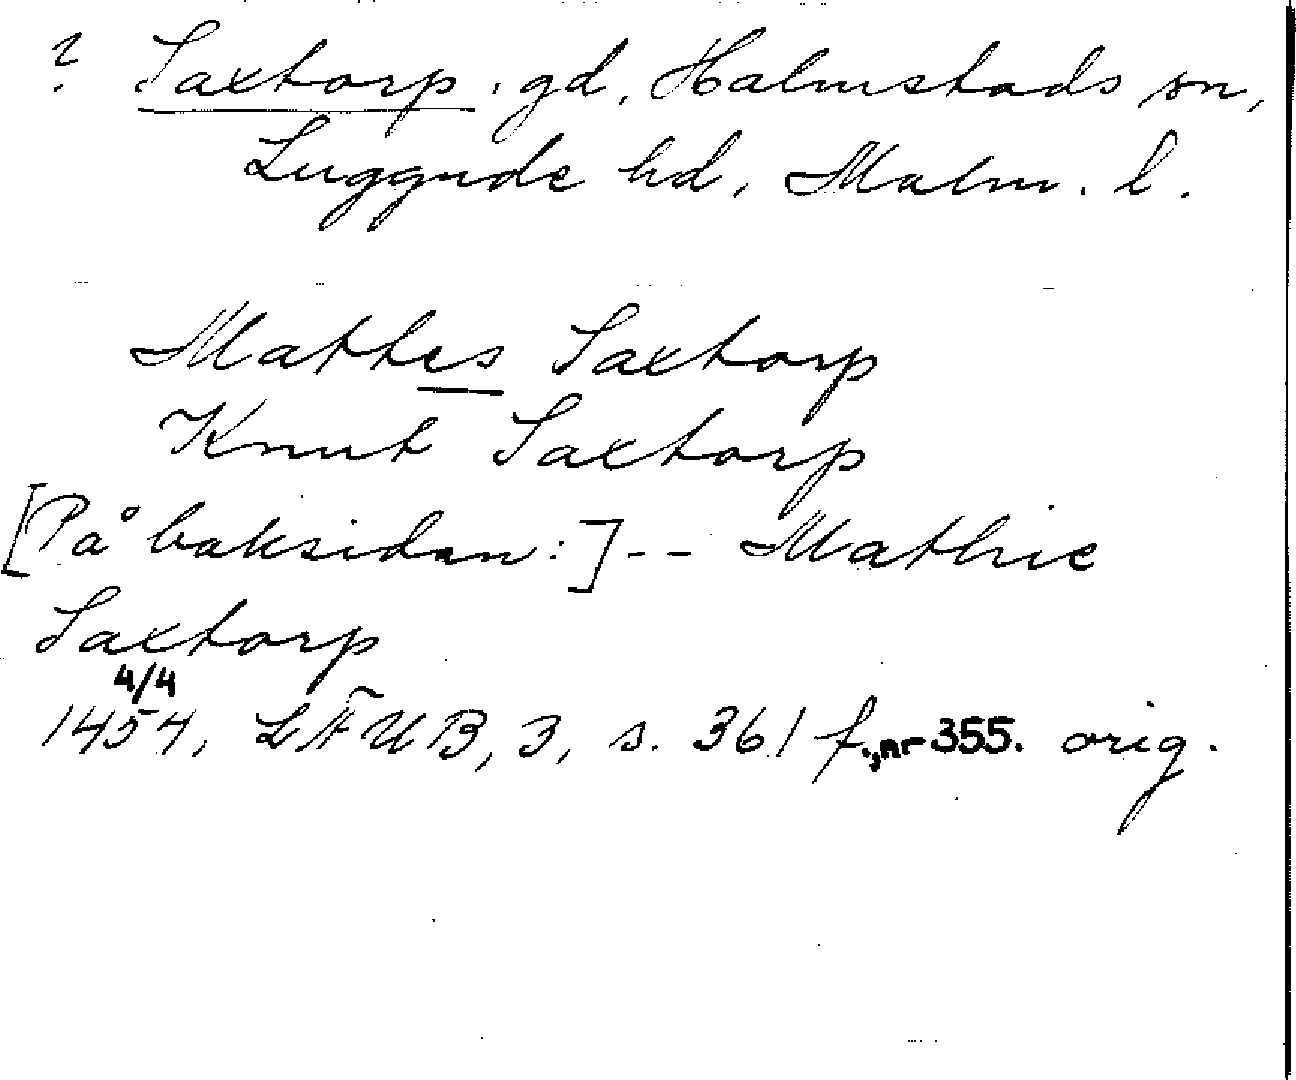 ? Saxtorp, gd, Halmstads sn,
Luggude hd, Malm. l.
Mathes Saxtorp
Knut Saxtorp
[På baksidan:]-- Mathie
Saxtorp
4/4
1454, LÄUB, 3, s. 361 f., nr 355. orig.